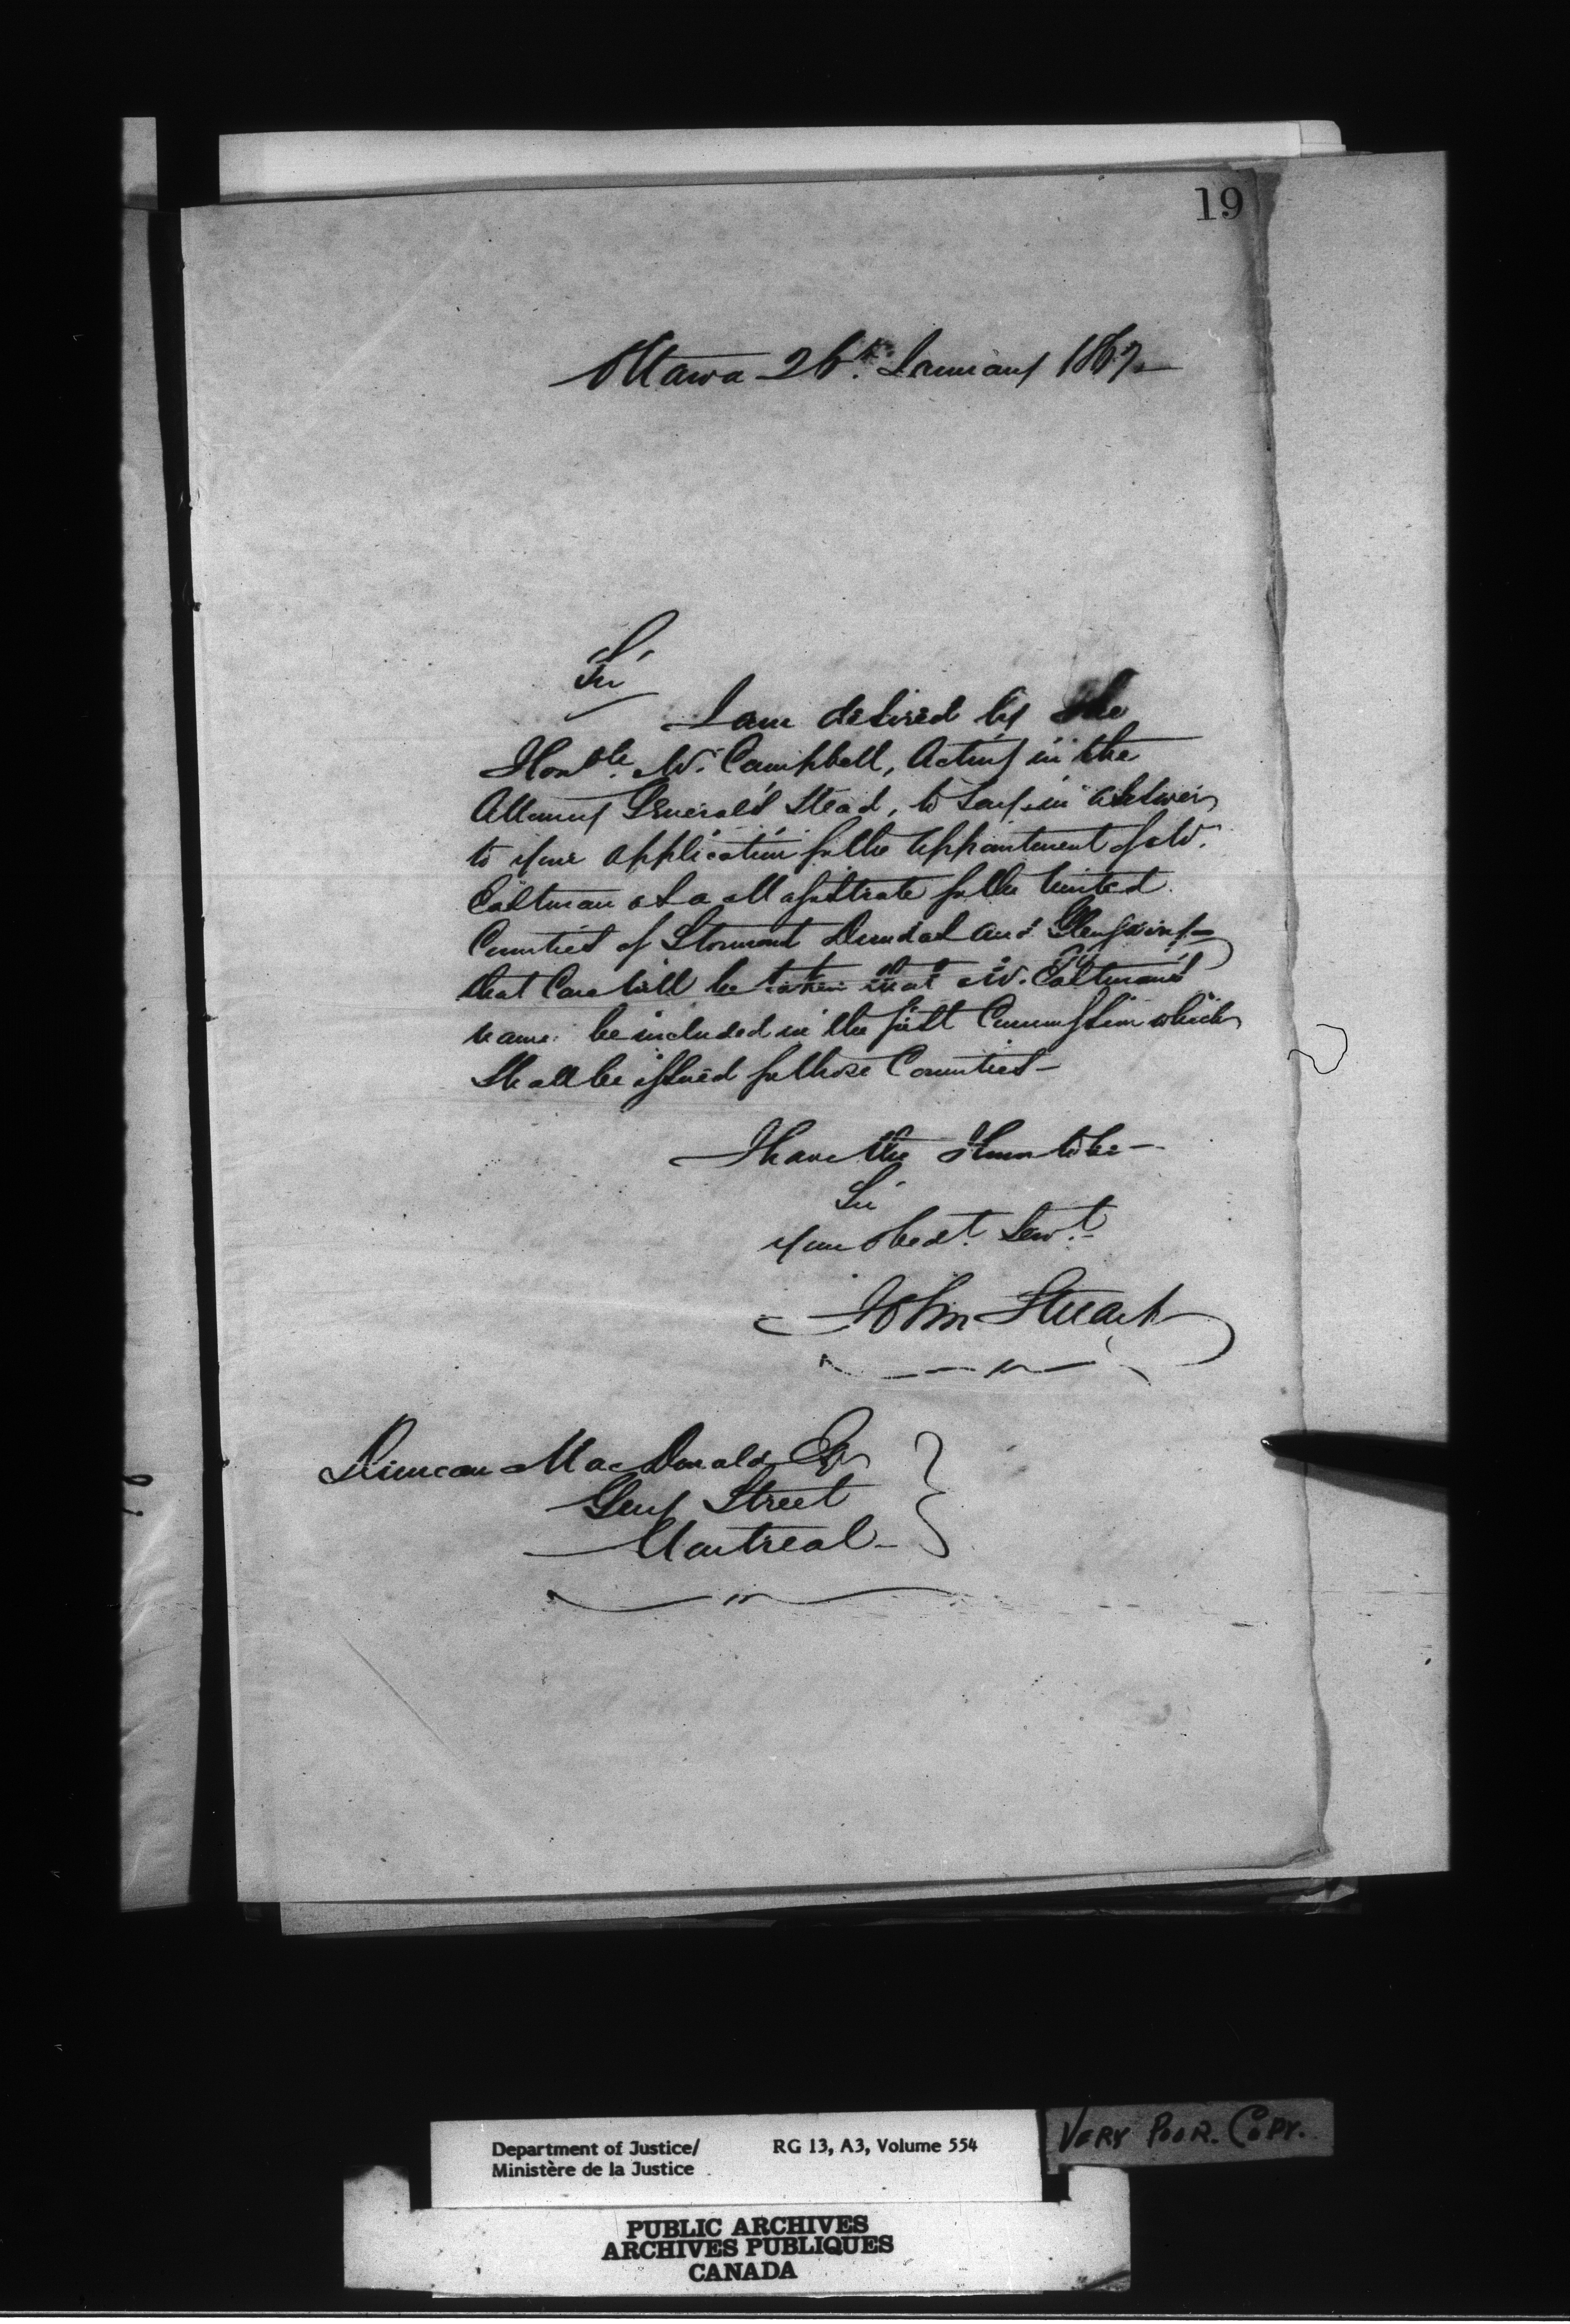 19
Ottawa 26th January 1867
Sir
I am desired by the
Honble. Mr. Campbell, acting in the
Attorney General's stead, to say in answer
to your application for the appointment of Mr.
Eastman as a Magistrate for the United
Counties of Stormont Dundas and Glengarry
that Care will be taken that Mr. Eastman's
name be included in the first Commission which
shall be issued for those Counties—
I have the Honor to be—
Sir
Your obedt. Servt.
John Stuart
Duncan MacDonald Esqr
Guy Street
Montreal—
Department of Justice/ RG 13, A3, Volume 554
Ministère de la Justice
VERY POOR. COPY.
PUBLIC ARCHIVES
ARCHIVES PUBLIQUES
CANADA